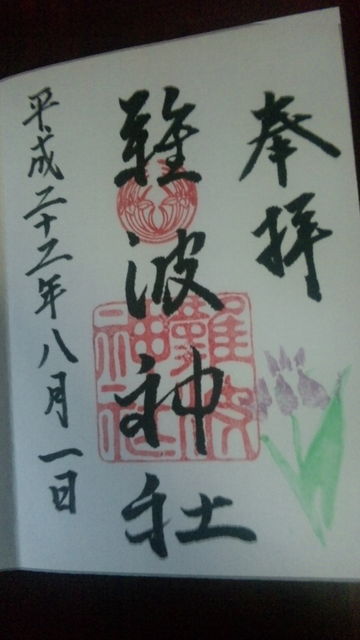 奉拝
難波神社
難波神社
平成二十二年八月一日